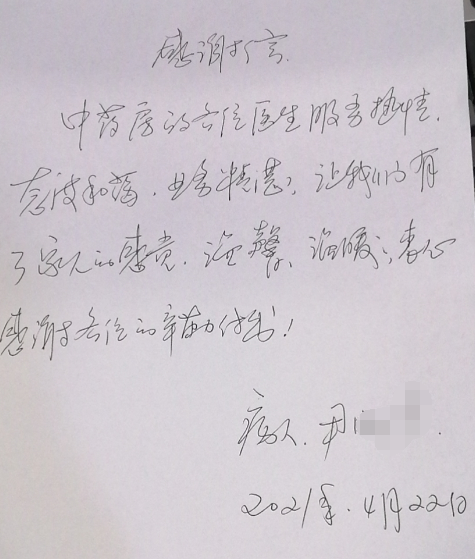 感谢信
中药房的各位医生服务热情,
态度和蔼,业务精湛;让我们有
了家人的感觉,温馨、温暖;衷心
感谢各位的辛苦付出!
病人.尹
2021年.4月22日